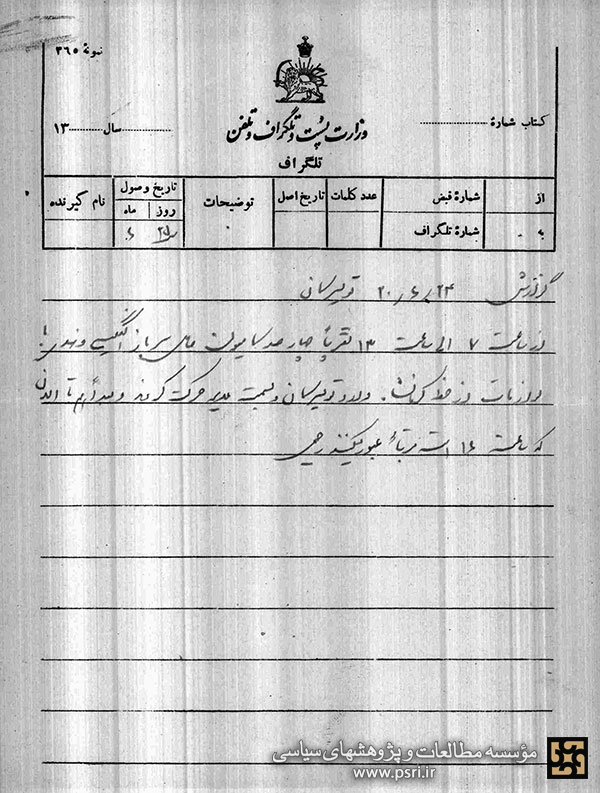 نمونهٔ ۳۶۵
کتاب شمارهٔ
سال ۱۳
وزارت پست و تلگراف و تلفن
تلگراف
از
شمارهٔ قبض
عدد کلمات
تاریخ اصل
توضیحات
تاریخ وصول
نام گیرنده
روز
ماه
به
شمارهٔ تلگراف
۲۵
۶
گزارش ۲۴/۶/۲۰ تویسرکان
از ساعت ۷ الی ساعت ۱۳ تقریباً چهارصد کامیون حامل سرباز انگلیسی و هندی با
لوازمات از خط کرمانشاه وارد تویسرکان و بسمت ملایر حرکت کردند و بعداً هم تا الان
که ساعت ۱۶ است مرتباً عبور میکنند رحیمی
مؤسسه مطالعات و پژوهشهای سیاسی
www.psri.ir